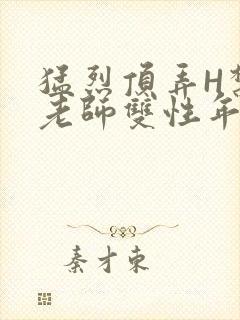 猛烈頂弄H
老師雙性年
秦才東